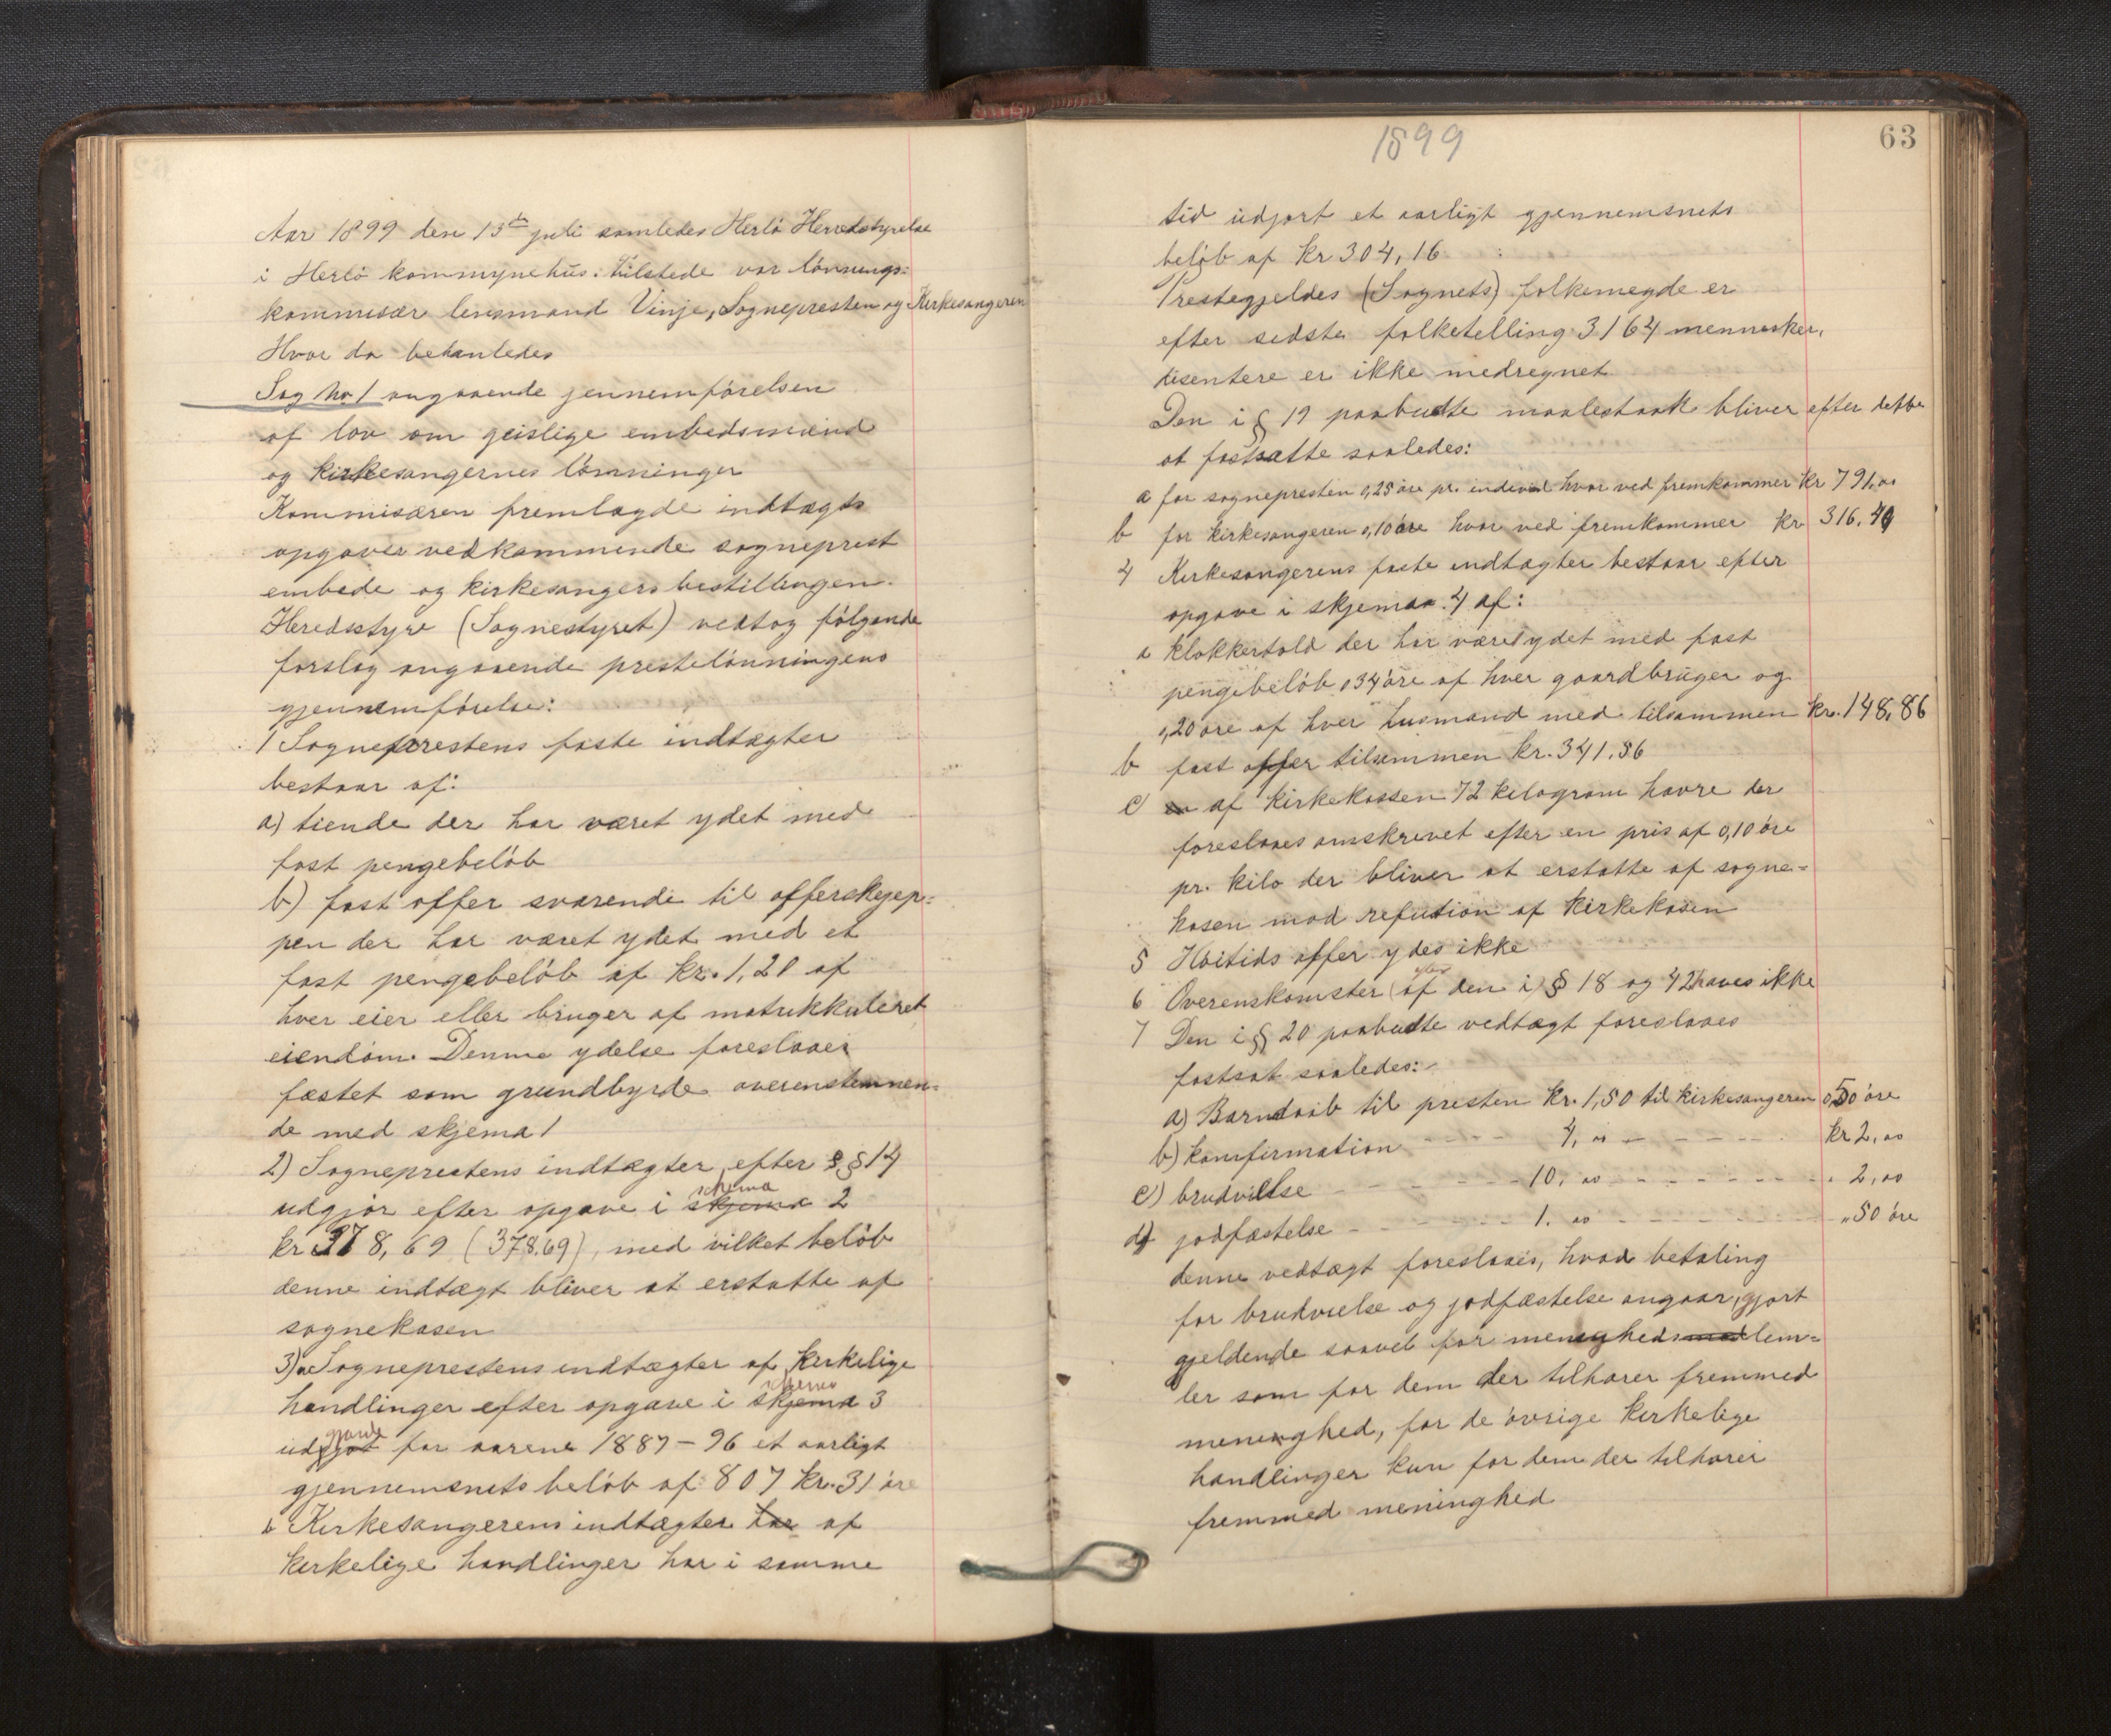 Aar 1899 den 13de juli samledes Herlö Herredstyrelse
i Herlö kommynehus. tilstede var lönnings-
kommisær lensmand Vinje, Sognepresten og Kirkesangeren
Hvor da behanledes
Sag No 1 angaaende jennemförelsen
af lov om geislige embedsmænd
og kirkesangernes lönninger
Kommisæren fremlagde indtægts
opgaver vedkammende sogneprest
embede og kirkesangers bestillingen.
Heredsstyre (Sognestyret) vedtog fölgende
forslag angaaende prestelönningens
gjennemförelse:
1 Sogneprestens faste indtægter
bestaar af:
a) tiende der har været ydet med
fast pengebelöb
b) fast offer svarende til offerskjep-
pen der har været ydet med et
fast pengebelöb af kr. 1,20 af
hver eier eller bruger af matrikkuleret
eiendom. Denne ydelse foreslaaes
fæstet som grundbyrde overenstemmen-
de med skjema 1
2) Sogneprestens indtægter, efter § § 14
udgjör efter opgave i skjema schema 2
kr 378,69 (378,69), med vilket belöb
denne indtægt bliver at erstatte af
sognekasen
3) a Sogneprestens indtægter af kirkelige
handlinger efter opgave i skjema schema 3
udgjöt gjorde for aarene 1887-96 et aarligt
gjennemsnets belöb af 807 kr. 31 öre
b Kirkesangerens indtægter har af
kirkelige handlinger har i samme
1899
63
tid udjort et aarligt gjennemsnets
belöb af kr 304,16
Prestegjeldes (Sognets) folkemegde er
efter sidste folketelling 3164 mennesker,
disentere er ikke medregnet
Den i § 19 paabudte maalestaak bliver efter dette
at fastsætte saaledes:
a for sognepresten 0,25 öre pr. indevid hvor ved fremkommer kr 791,00
b for kirkesangeren 0,10 öre hvor ved fremkommer kr 316,40
4 Kirkesangerens faste indtægter bestaar efter
opgave i skjemaa 4 af:
a klokkertold der har været ydet med fast
pengebelöb 0,34 öre af hver gaardbruger og
0,20 öre af hver husmand med tilsammen kr. 148,86
b fast offer tilsammen kr. 341.56
c) en af kirkekassen 72 kilogram havre der
foreslaaes omskrevet efter en pris af 0,10 öre
pr. kilo der bliver at erstatte af sogne-
kasen mod refution af kirkekasen
5 Höitids offer ydes ikke
6 Overenskomster af den i § 18 og 42 haves ikke
7 Den i § 20 paabudte vedtægt foreslaaes
fastsat saaledes:
a) Barndaab til presten kr. 1,50 til kirkesangeren 0,50 öre
b) konfirmation - - - - 4, 00 - - - - - kr 2,00
c) brudvielse - - - - - - 10, 00 - - - - - - 2,00
d) jodfæstelse - - - - - - 1. 00 - - - - - - „50 öre
denne vedtægt foreslaaes, hvad betaling
for brudvielse og jodfæstelse angaar, gjort
gjeldende saavel for menighedsmedlem-
ler som for dem der tilhorer fremmed
menenghed, for de övrige kirkelige
handlinger kun for dem der tilhorer
fremmed meninghed